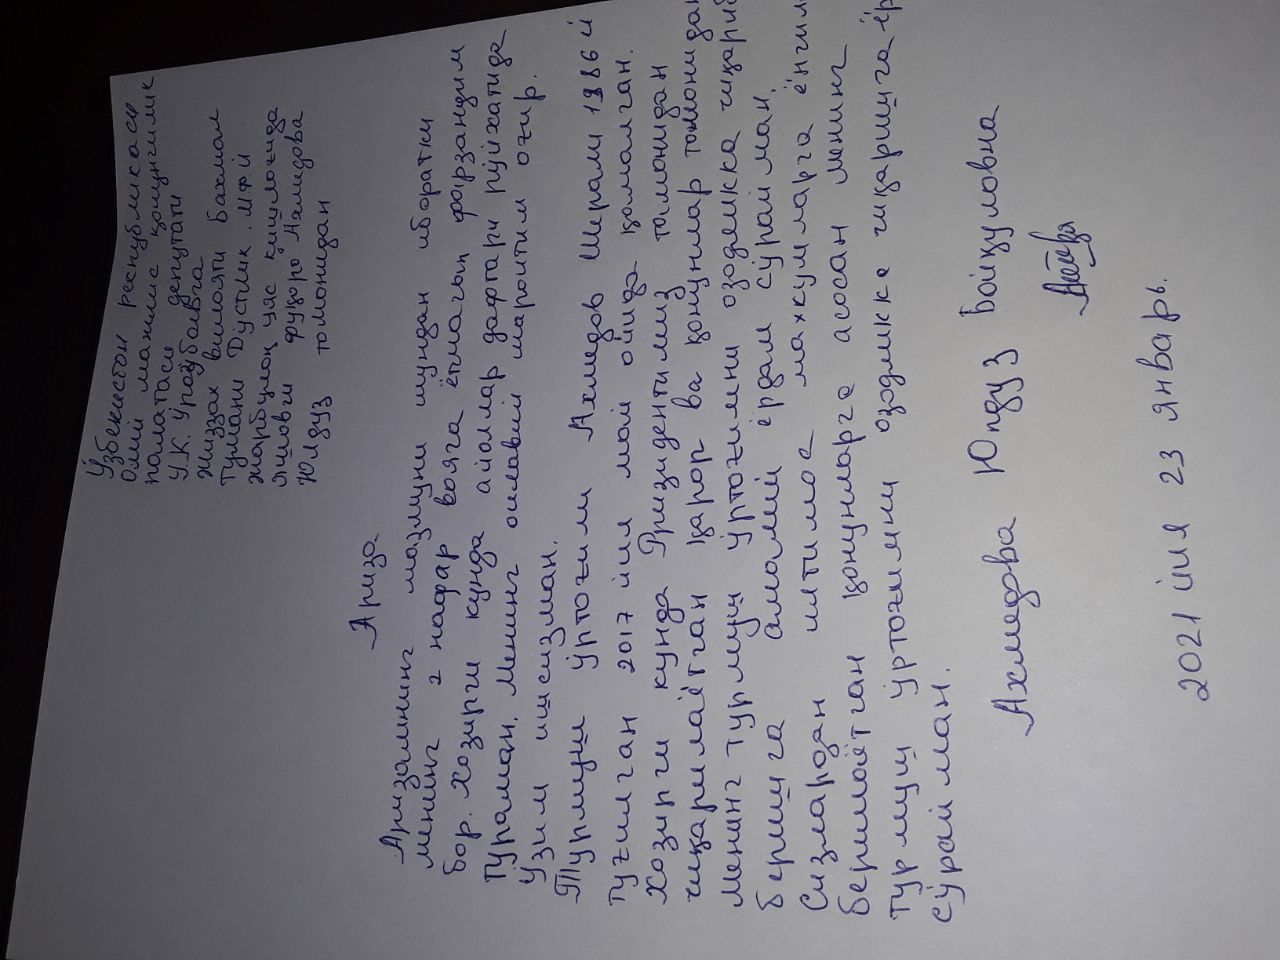 Ўзбекистон республикаси
Олий мажлис қонунчилик
палатаси депутати
У.К. Ўразбоевга
Жиззах вилояти Бахмал
тумани Дўстлик МФЙ
Жарбулоқ уяс қишлоғида
яшовчи фуқаро Ахмедова
Юлдуз томонидан
Ариза
Аризамнинг мазмуни шундан иборатки
менинг 2 нафар вояга ётмаган фарзандим
бор. Хозирги кунда аёллар дафтари рўйхатида
тураман. Менинг оилавий шароитим оғир.
Ўзим ишсизман.
Турмуш ўртоғим Ахмедов Шерали 1986 й
туғилган 2017 йил май ойида қамалган.
Хозирги кунда Призидентимиз томонидан
чиқарилаётган қарор ва қонунлар томонидан
менинг турмуш ўртоғимни озодликка чиқариб
беришга амалий ёрдам сўрайман.
Сизлардан илтимос махкумларга ёнгил
берилаётган қонунларга асосан менинг
турмуш ўртоғимни озодликка чиқаришга ёр
сўрайман.
Ахмедова Юлдуз Бойқуловна
2021 йил 23 январь.